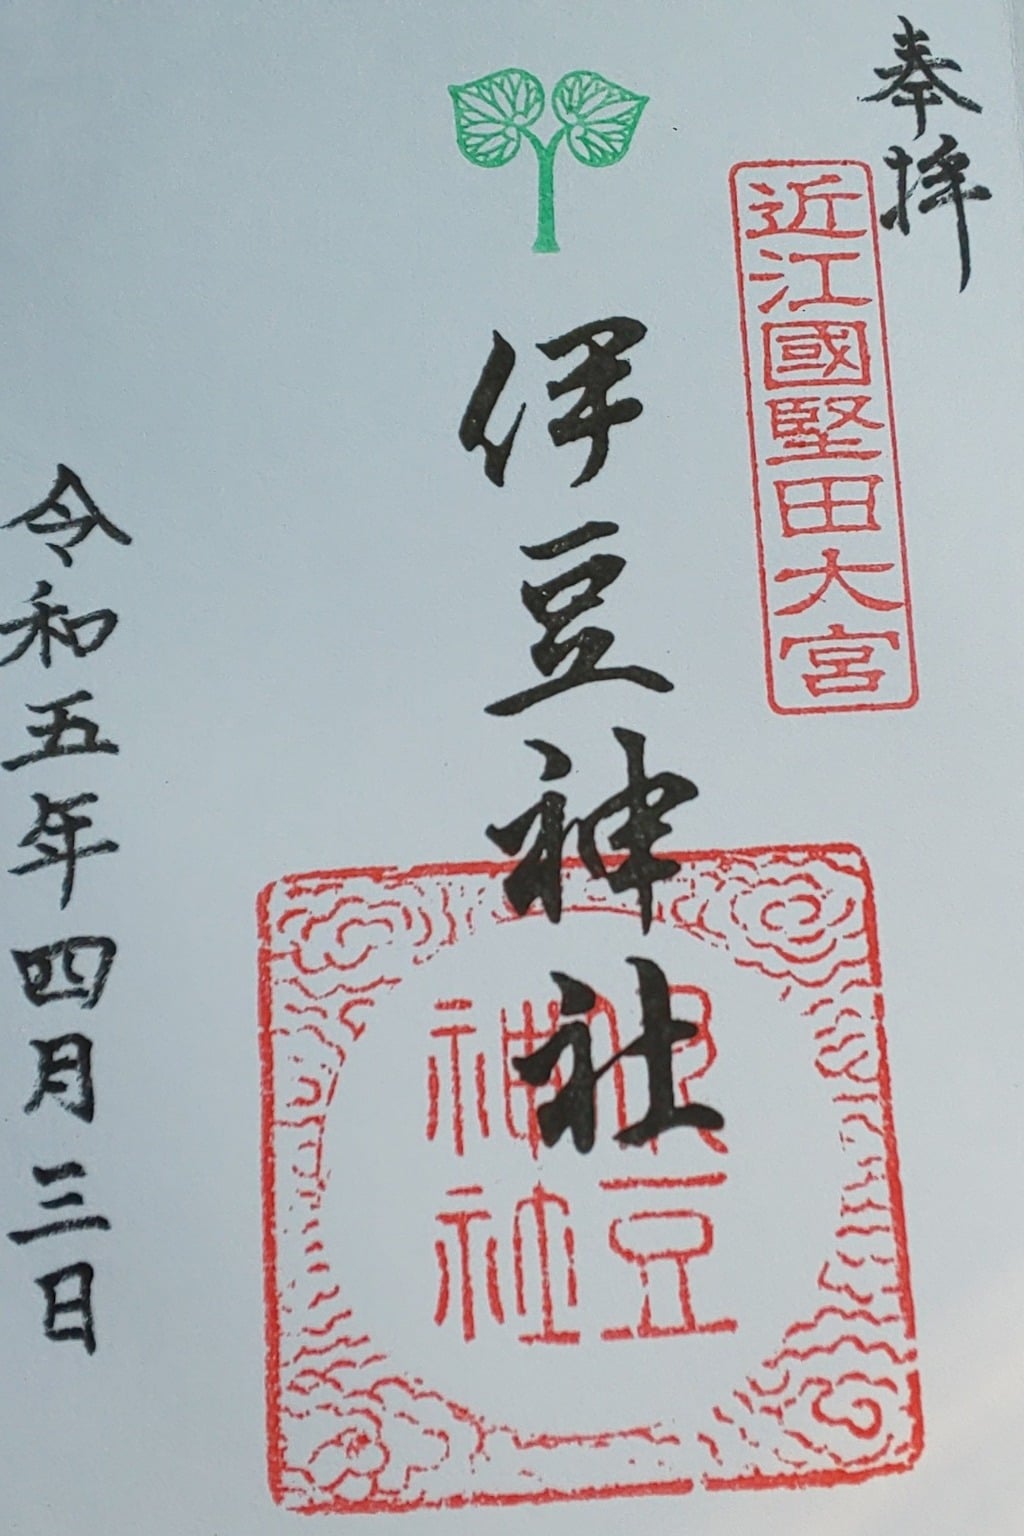 奉拝
近江國堅田大宮
伊豆神社
伊豆神社
令和五年四月三日